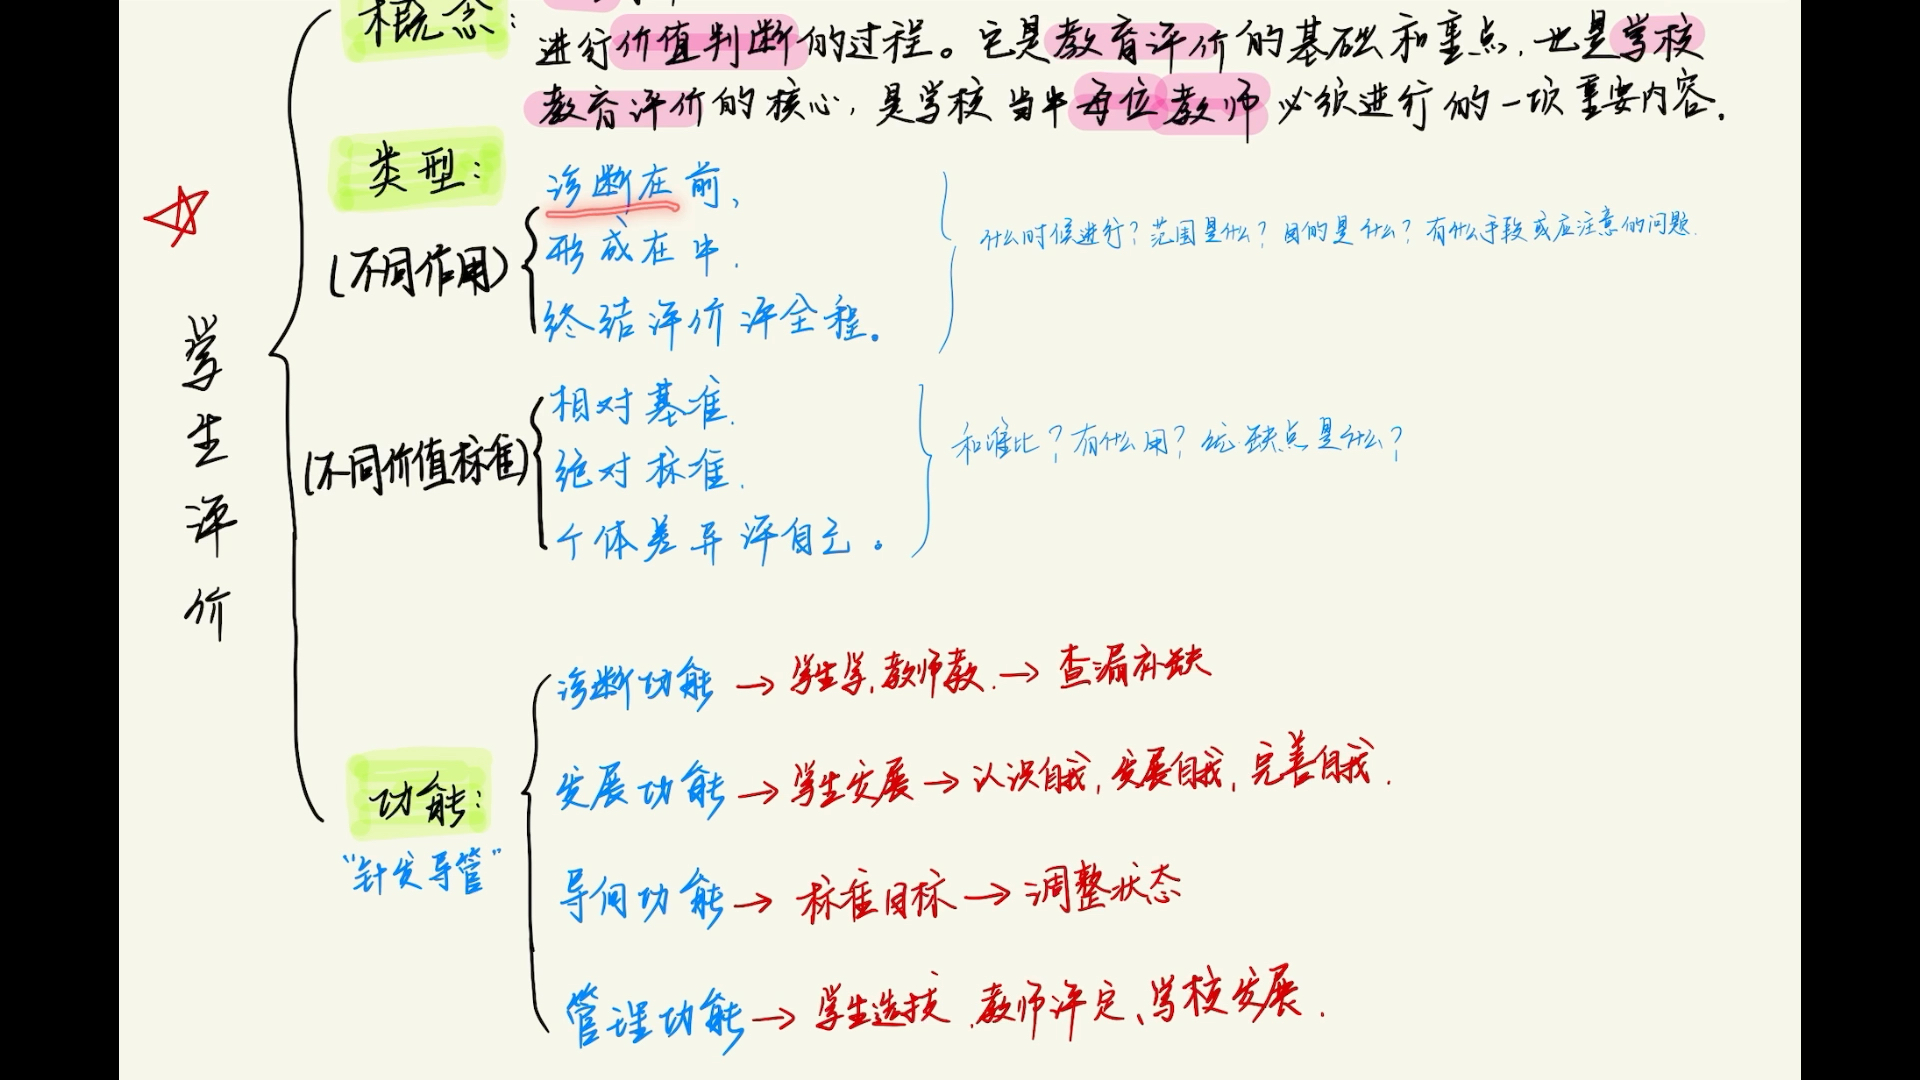 概念:
进行价值判断的过程。它是教育评价的基础和重点,也是学校
教育评价的核心,是学校当中每位教师必须进行的一项重要内容.
类型:
(不同作用)
诊断在前、
形成在中.
终结评价评全程。
什么时候进行?范围是什么?目的是什么?有什么手段或应注意的问题.
学生评价
(不同价值标准)
相对基准.
绝对标准.
个体差异评自己。
和谁比?有什么用?优缺点是什么?
功能:
“针发导管”
诊断功能→学生学,教师教.→查漏补缺
发展功能→学生发展→认识自我,发展自我,完善自我.
导向功能→标准目标→调整状态
管理功能→学生选拔.教师评定、学校发展.